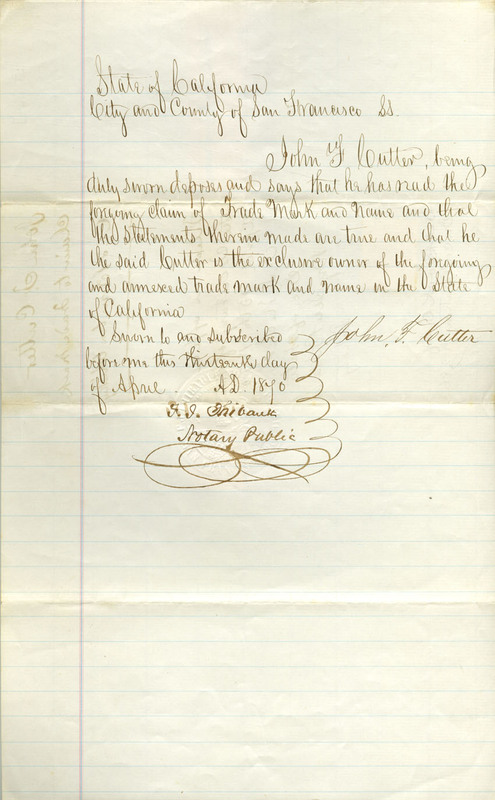 State of California
City and County of San Francisco Ss.
John F Cutter, being
duly sworn deposes and says that he has read the
foregoing claim of Trade Mark and Name and that
the statements therein made are true and that he
the said Cutter is the exclusive owner of the foregoing
and annexed trade mark and name in the State
of California
Sworn to and subscribed
before me this thirteenth day
of April A.D. 1870
John, F. Cutter
Notary Public